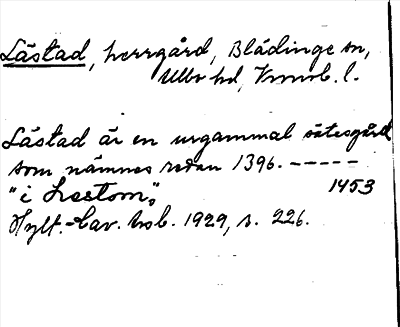 Låstad, herrgård, Blädinge sn,
Allbo hd, Kronob. l.
Låstad är en urgammal sätesgård
som nämnes redan 1396. -----
"i Lastom". 1453
Hylt.-Cav. bob. 1929, s. 226.